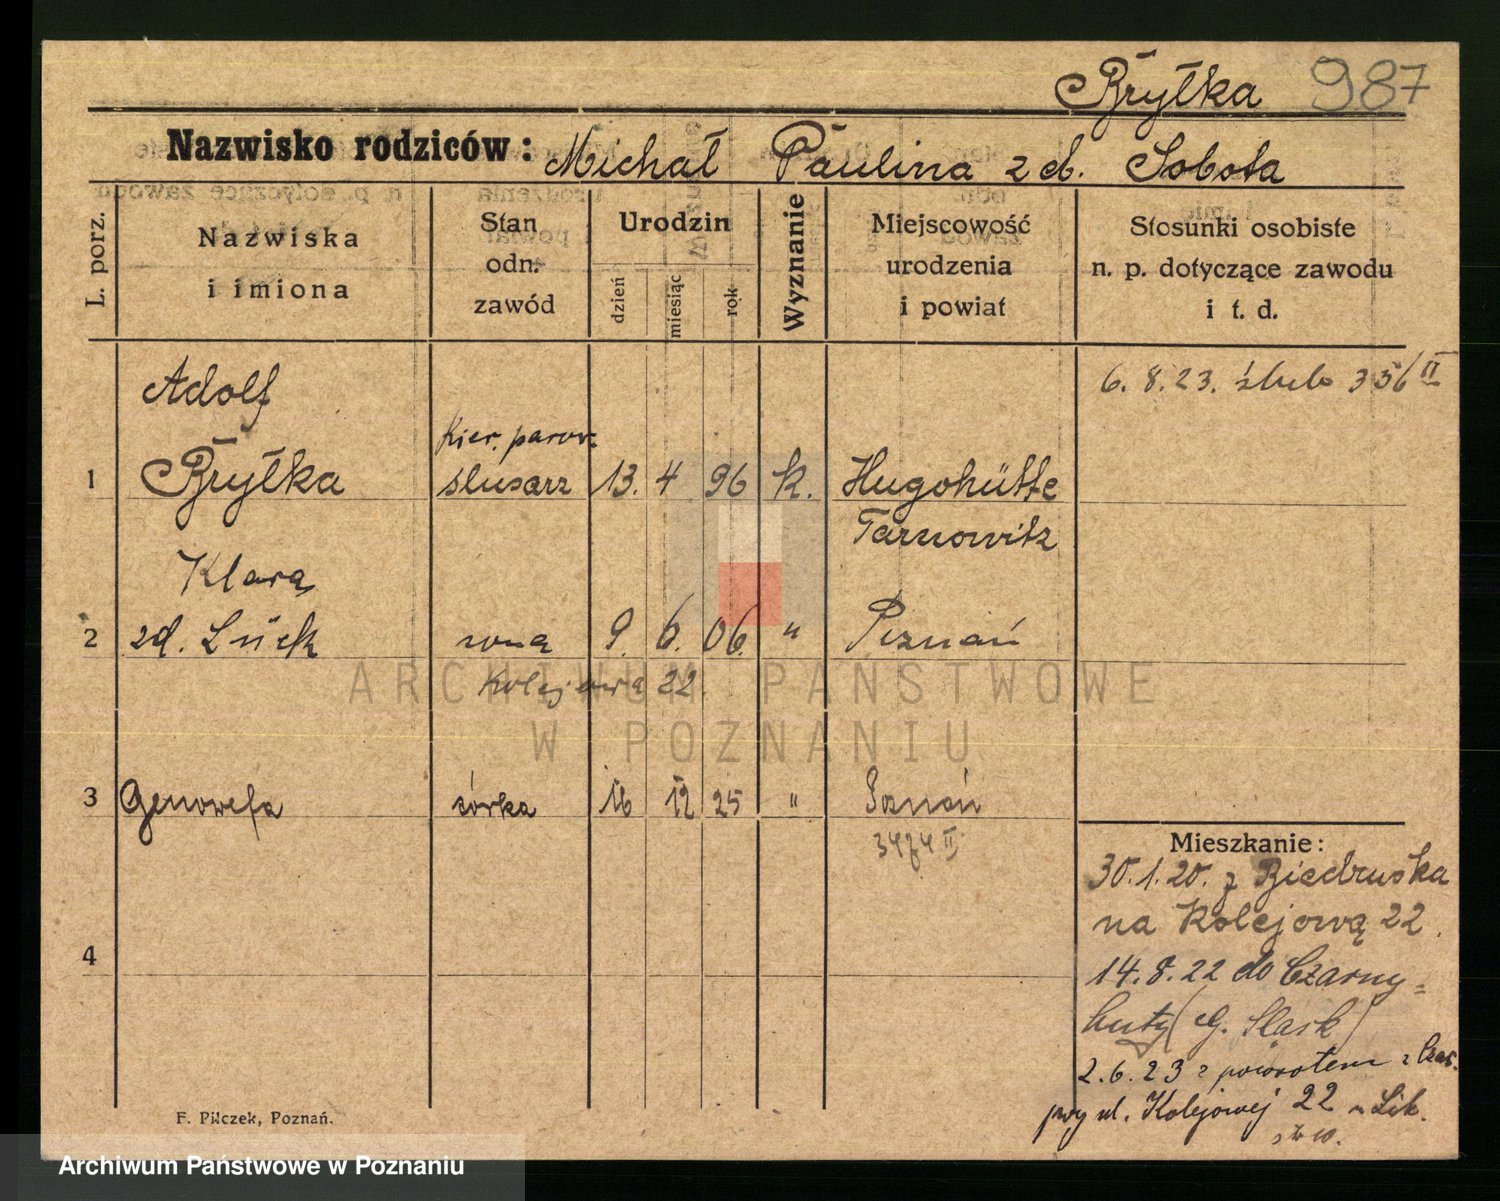 Bryłka 987
Nazwisko rodziców: Michał Paulina zd. Sobota
L. porz.
Nazwiska i imiona
Stan odn. zawód
Urodzin
dzień
miesiąc
rok
Wyznanie
Miejscowość urodzenia i powiat
Stosunki osobiste n. p. dotyczące zawodu i t. d.
Adolf
6. 8. 23. ślub 356 II
kier. parow.
1 Bryłka ślusarz 13. 4 96 k. Hugohütte
Tarnowitz
Klara
2 zd. Lück żona 9. 6. 06. " Poznań
Kolejowa 22.
ARCHIWUM PAŃSTWOWE
W POZNANIU
3 Genowefa córka 16 12 25 " Poznań
3474 II
Mieszkanie:
30.1.20. z Biedruska
na Kolejową 22.
4
14.8.22 do Czarny-
huty (G. Śląsk)
2.6.23 z powrotem z Czar.
przy ul. Kolejowej 22
F. Pilczek, Poznań.
Archiwum Państwowe w Poznaniu